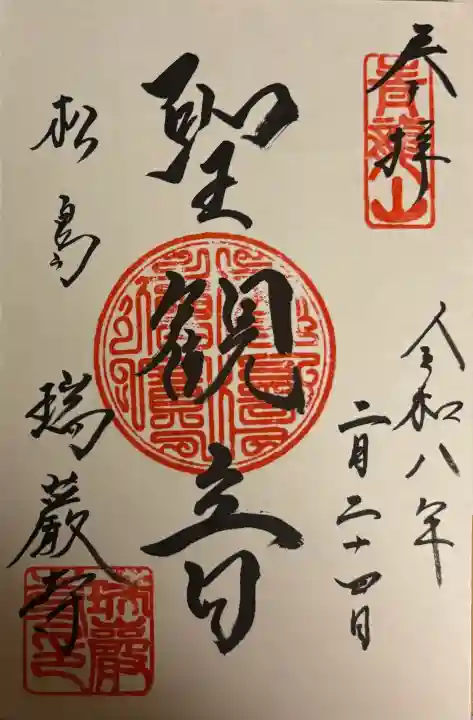 奉拝
青龍山
令和八年
二月二十四日
聖観音
松島 瑞巌寺
瑞巌